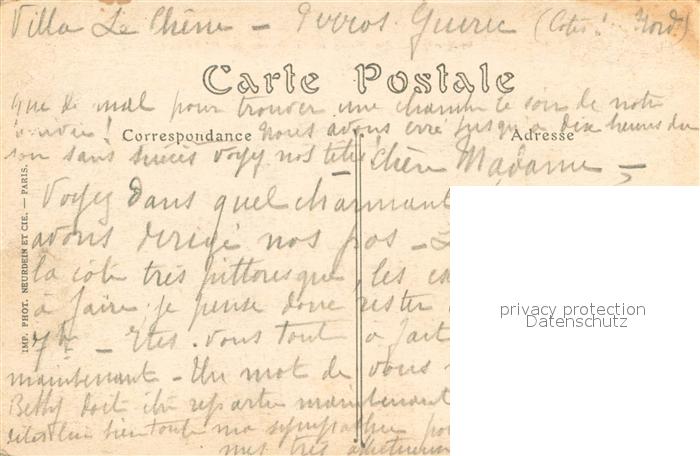 Villa Le Chêne - Perros. Guirec (Cotes. Nord)
Carte Postale
que de mal pour trouver une chambre le soir de notre
arrivée! Nous avons erré jusqu'à dix heures du
Correspondance
Adresse
soir sans succès voyez nos têtes!
Chère Madame -
Voyez dans quel charmant
avons dirigé nos pas - L
la côte très pittoresque, les
à faire. je pense donc rester
7bre - Etes-vous tout à fait
maintenant - Un mot de vous
Betty doit être repartie maintenant
dites lui bien toute ma sympathie
mes très
IMP. PHOT. NEURDEIN ET CIE. — PARIS.
privacy protection
Datenschutz